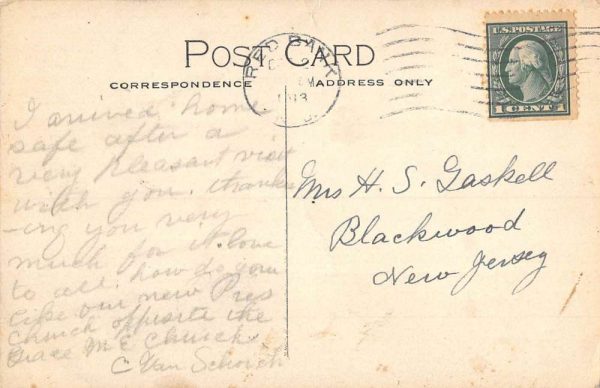 POST CARD
CORRESPONDENCE
ADDRESS ONLY
RED BANK
U.S. POSTAGE
1 CENT 1
I arrived home
safe after a
very pleasant visit
with you. thank
-ing you very
much for it. love
to all. how do you
like our new Pres
Church opposite the
Grace M E Church
C Van Schoick
Mrs H. S. Gaskell
Blackwood
New Jersey